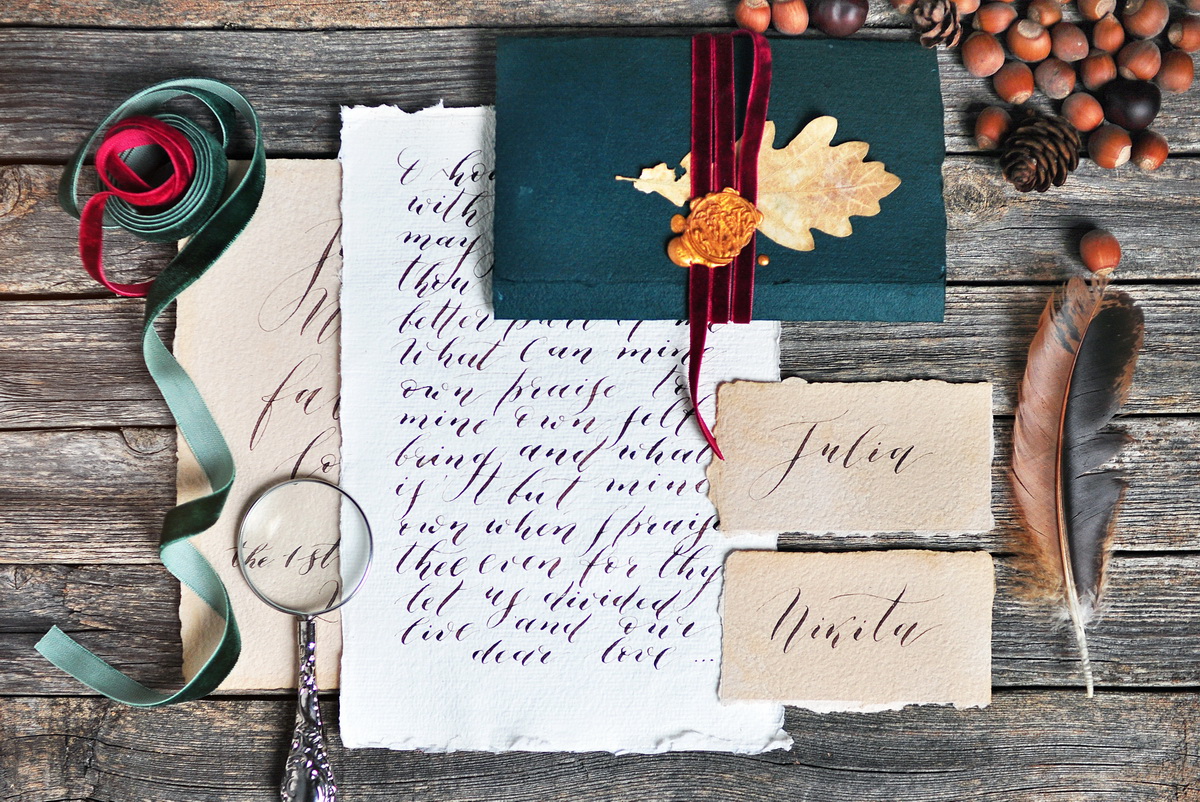 O how
with
may
thou
better part of
What can mine
own praise to
mine own self
bring and what
is 't but mine
own when I praise
thee even for thy
let us divided
live and our
dear love ...
the 1st
Julia
Nikita